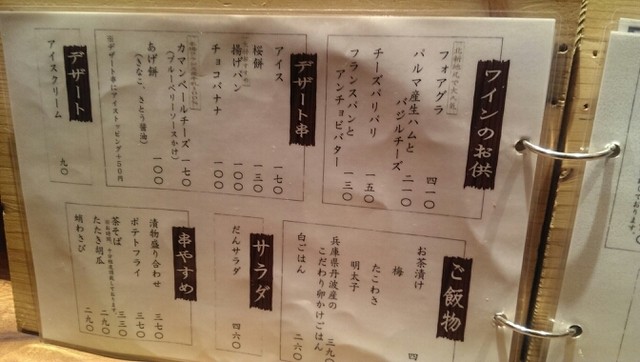 ワインのお供
フォアグラ 四一〇
パルマ産生ハムと
バジルチーズ 二一〇
チーズパリパリ 一五〇
フランスパンと
アンチョビバター 一三〇
デザート串
アイス 一七〇
桜餅 一三〇
揚げパン 一〇〇
チョコバナナ 一〇〇
カマンベールチーズ 一七〇
(ブルーベリーソースかけ)
あげ餅 一〇〇
(きなこ、さとう醤油)
※デザート串にアイストッピング+五〇円
デザート
アイスクリーム 九〇
ご飯物
お茶漬け
梅 四
たこわさ
明太子
兵庫県丹波産の
こだわり卵かけごはん 三九〇
白ごはん 二六〇
サラダ
だんサラダ 四六〇
串やすめ
漬物盛り合わせ 三七〇
ポテトフライ 三七〇
茶そば 三三〇
たたき胡瓜 二九〇
蛸わさび 二九〇